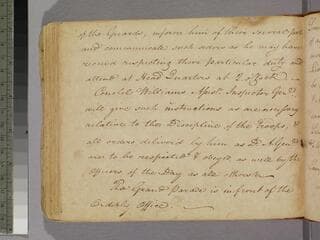 of the Guards, inform him of there several
and communicate such orders as he may have
receive respecting there particular duty and
attend at Head Quarters at 2 oClock
Williams Assist. Inspector Genl
will give such instructions as are necessary
relative to the Discipline of the Troops, &
all orders deliver'd by him as D. A Genl
are to be respected & obeyed as well by the
officers of the Day as all others
The Grand Parade is in front of the
Orderly Office.